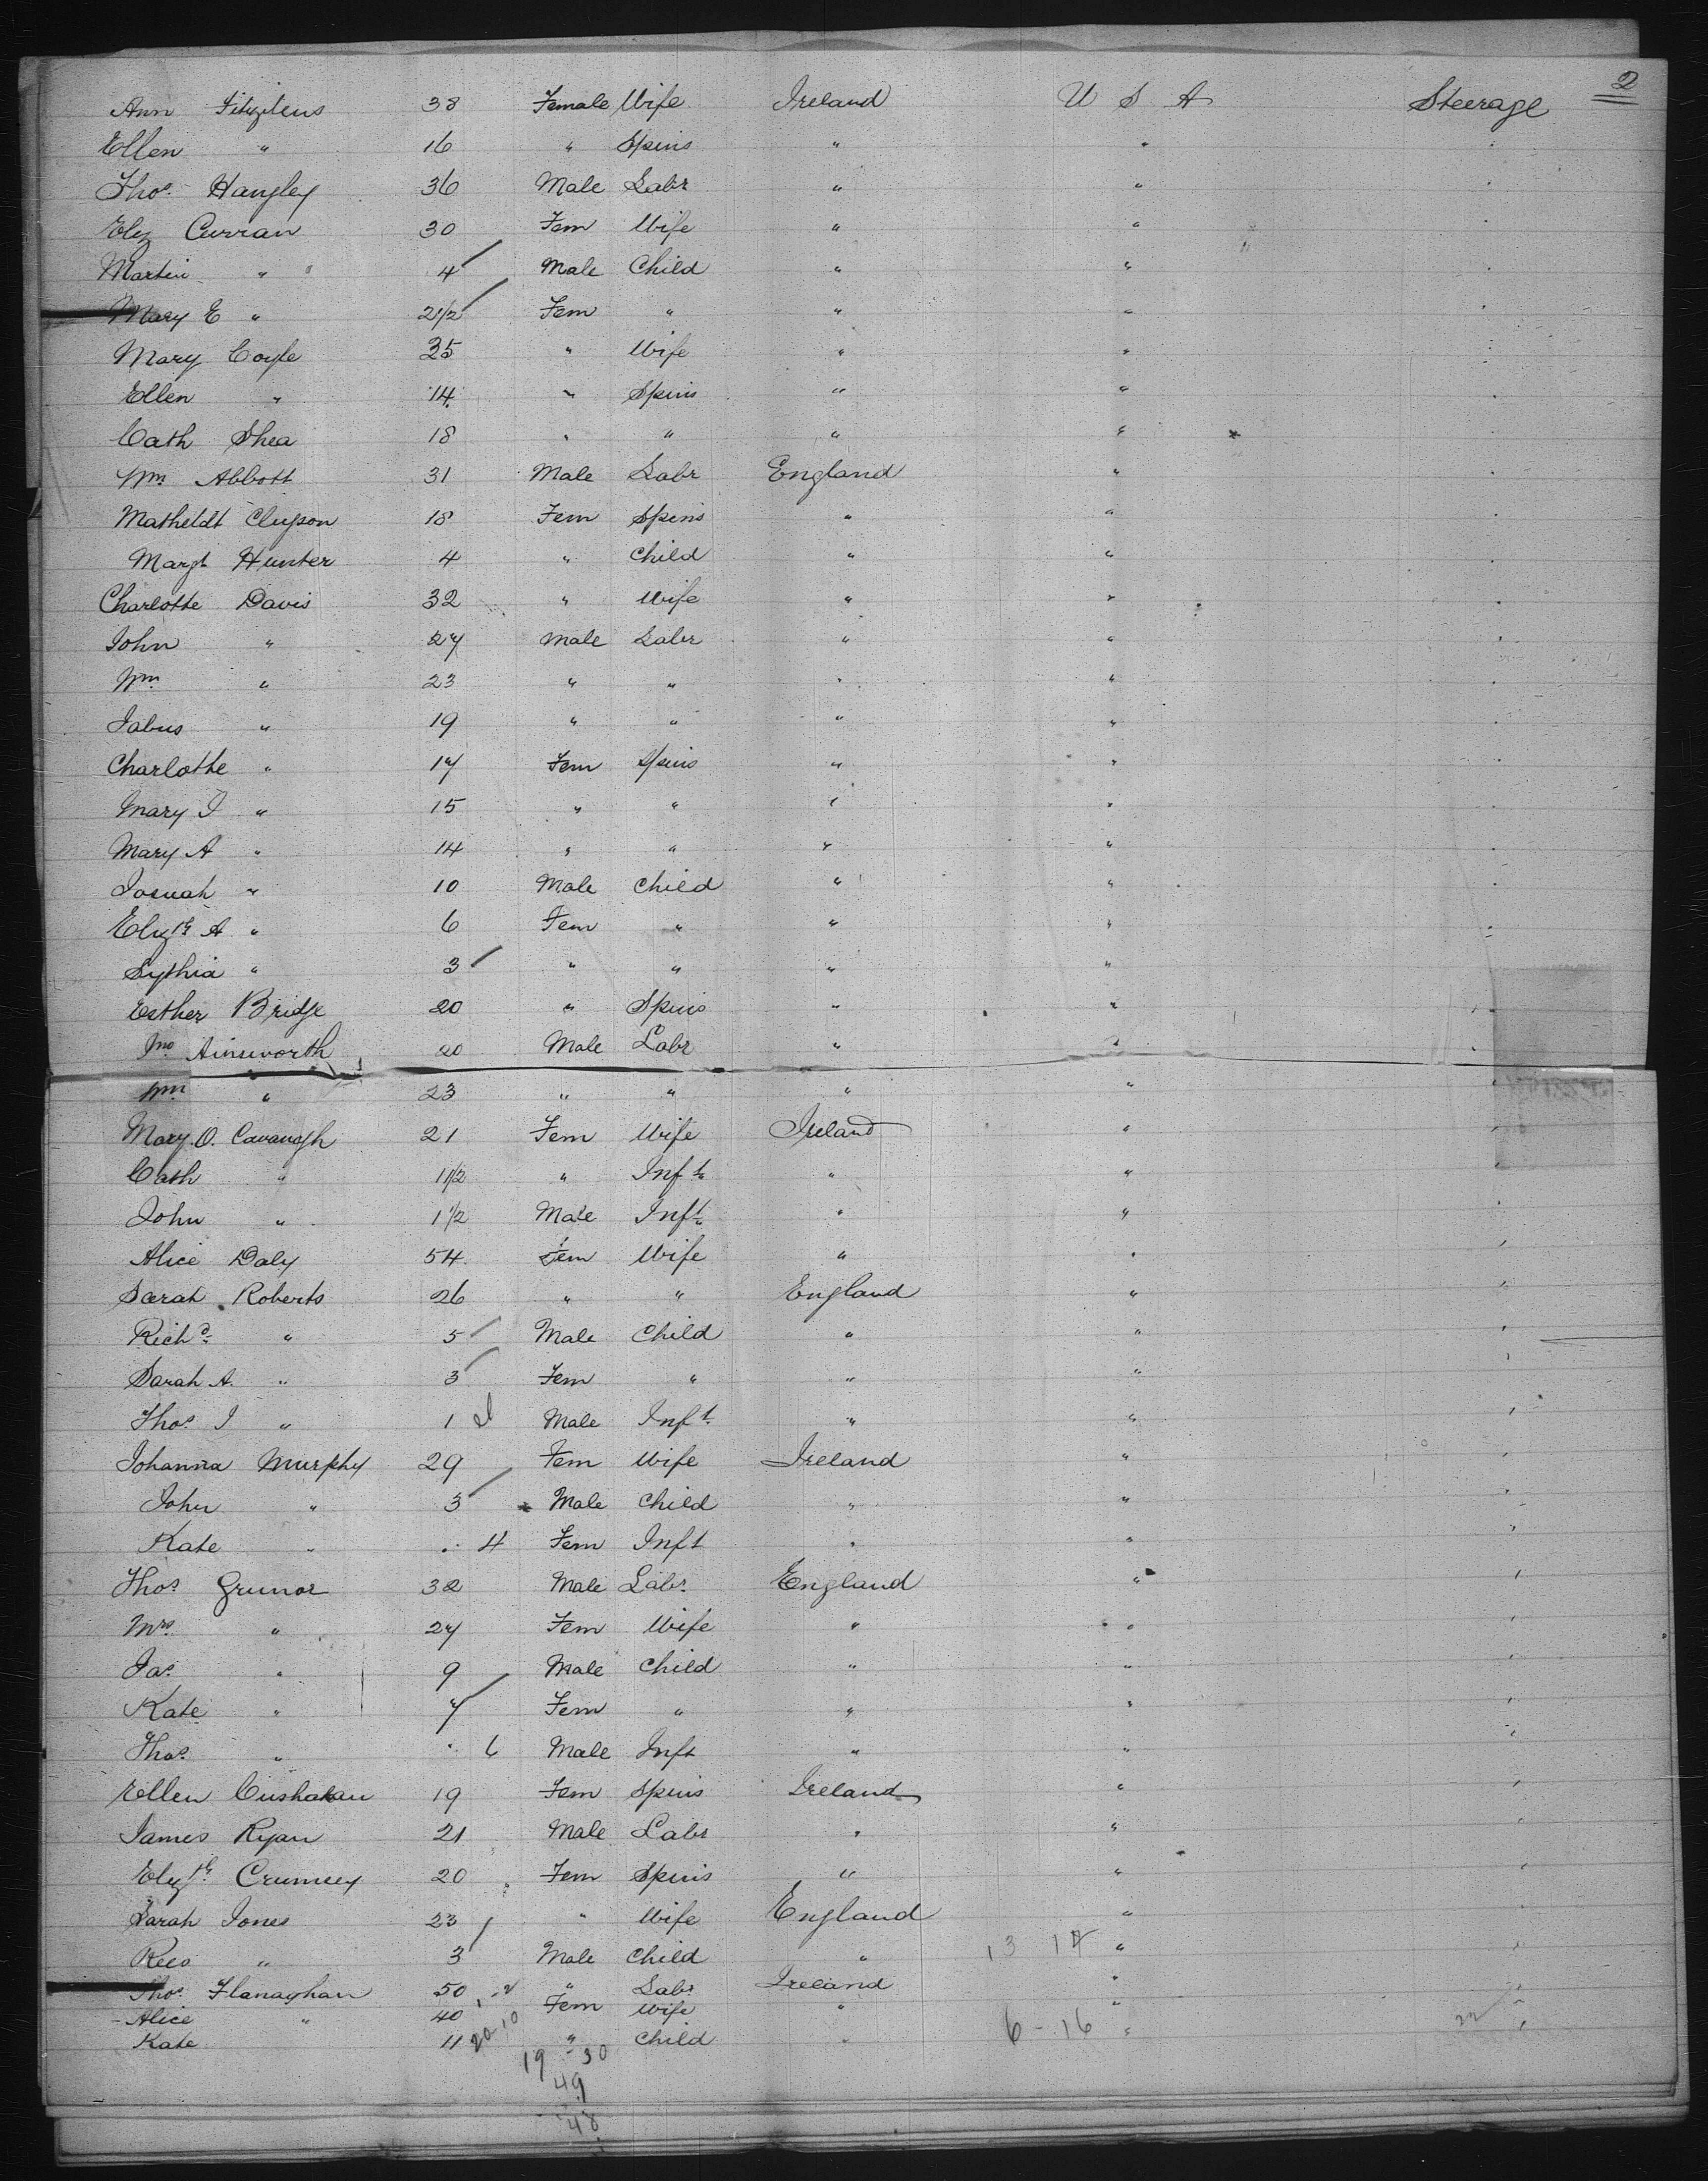 2
Ann 38 Female Wife Ireland U S A Steerage
Ellen " 16 " Spins " " "
Thos. Hangley 36 Male Labr " " "
Elez Curran 30 Fem Wife " "
Martin " 4 Male Child " " "
Mary E " 2 1/2 Fem " " " "
Mary Coyle 25 " Wife " " "
Ellen " 14 " Spins " " "
Cath Shea 18 " " " " "
Wm. Abbott 31 Male Labr England " "
Matheldt Clupson 18 Fem Spins " " "
Margt Hunter 4 " Child " "
Charlotte Davis 32 " Wife " " "
John " 27 Male Labr " " "
Wm. " 23 " " " " "
Jabus " 19 " " " " "
Charlotte " 17 Fem Spins " " "
Mary J " 15 " " " " "
Mary A " 14 " " " " "
Josuah " 10 Male Child " " "
Elizth A " 6 Fem " " " "
Sythia " 3 " " " " "
Esther Bridge 20 " Spins " " "
Jno Ainsworth 20 Male Labr " " "
Wm. " 23 " " " " "
Mary O. Cavanagh 21 Fem Wife Ireland " "
Cath " 1 1/2 " Inft. " " "
John " 1 1/2 Male Inft. " " "
Alice Daly 54 Fem Wife " " "
Sarah Roberts 26 " " England " "
Richd. " 5 Male Child " " "
Sarah A. " 3 Fem " " " "
Thos J " 1 Male Inft. " " "
Johanna Murphy 29 Fem Wife Ireland " "
John " 3 Male Child " " "
Kate " 4 Fem Inft " " "
Thos Grunor 32 Male Labr. England " "
Mrs. " 27 Fem Wife " " "
Jas. " 9 Male Child " " "
Kate " 7 Fem " " " "
Thos. " 6 Male Inft " " "
Ellen Cushahan 19 Fem Spins Ireland " "
James Ryan 21 Male Labr " " "
Elizth Crumey 20 Fem Spins " " "
Sarah Jones 23 " Wife England " "
Rees " 3 Male Child " 13 17 " "
Thos. Flanaghan 50 " Labr Ireland " "
Alice " 40 Fem Wife " " "
Kate 11 20-10 " Child " 6-16 " 22 "
19 30
49
48